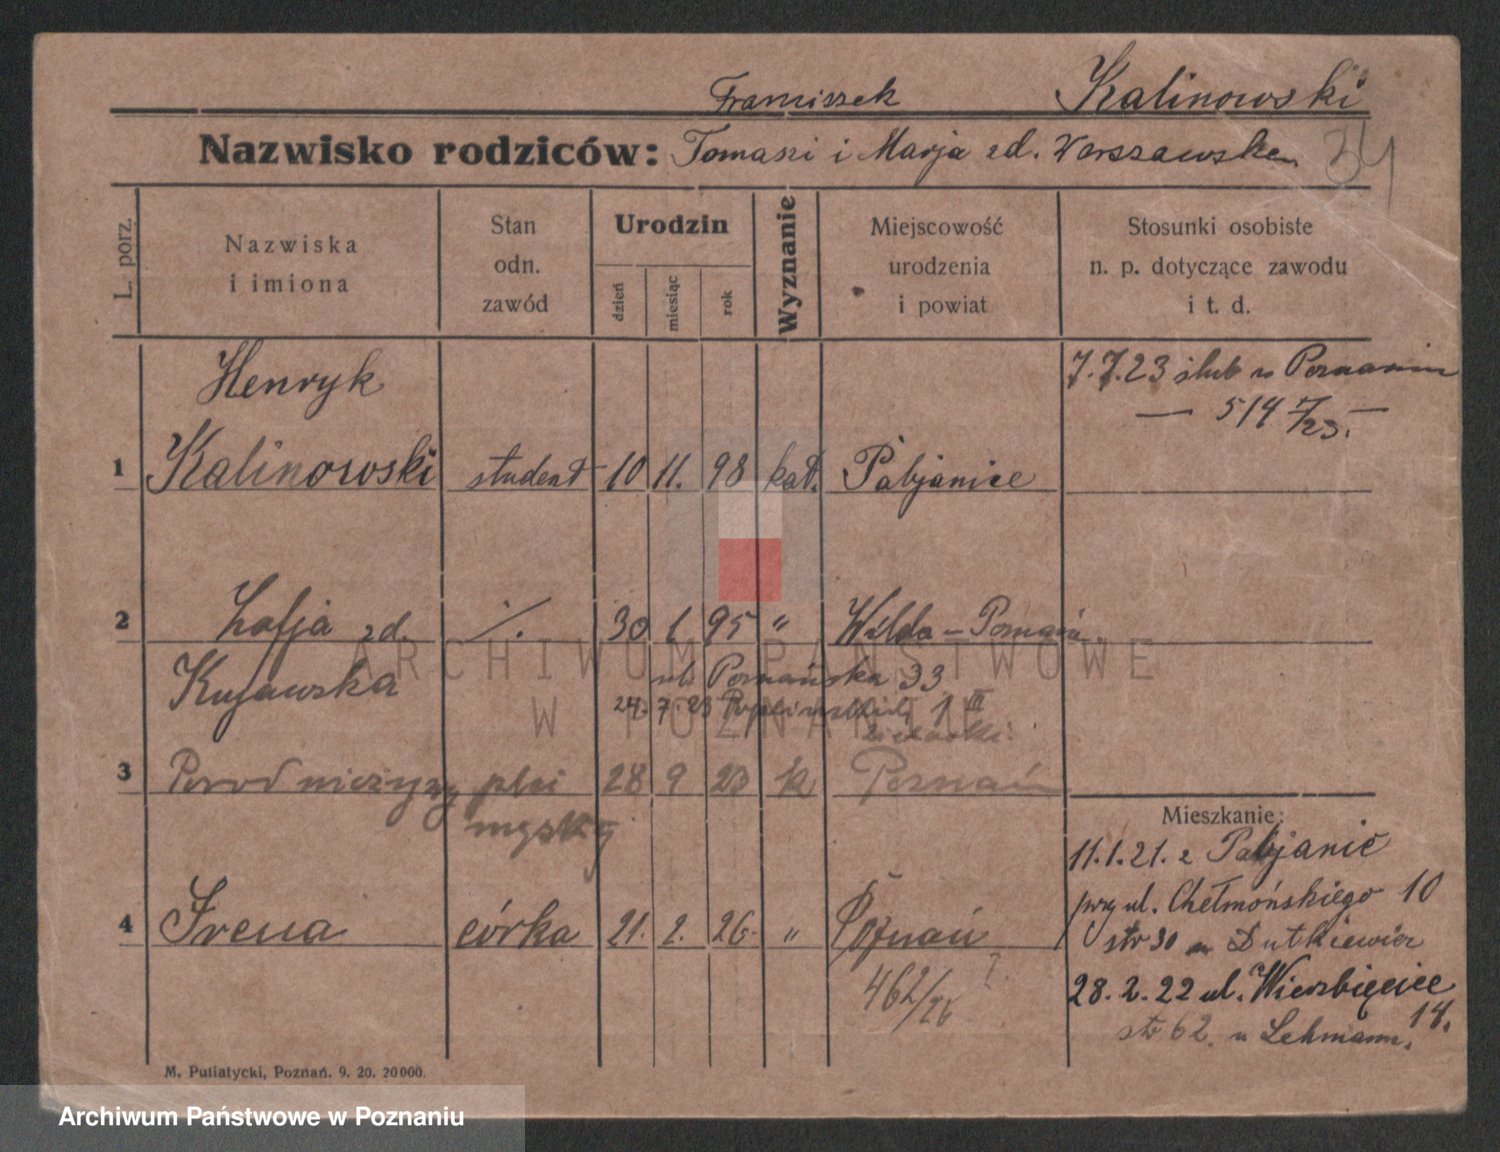 Franciszek Kalinowski
Nazwisko rodziców: Tomasz i Marja zd. Warszawska
L. porz.
Nazwiska
i imiona
Stan
odn.
zawód
Urodzin
dzień
miesiąc
rok
Wyznanie
Miejscowość
urodzenia
i powiat
Stosunki osobiste
n. p. dotyczące zawodu
i t. d.
7.7.23 ślub w Poznaniu
— 514 7/23. —
Henryk
1 Kalinowski student 10 11. 98 kat. Pabjanice
2 Zofja zd. ./. 30 1. 95 " Wilda – Poznań
Kujawska
ul. Poznańska 33
24. 7. 23 1 III
3 Poród nieżywy płci 28 9 23 k Poznań
męskiej
Mieszkanie:
11.1.21. z Pabjanic
przy ul. Chełmońskiego 10
str 30 Dutkiewicz
4 Irena córka 21. 2. 26. " Poznań
462/26
28. 2. 22 ul. Wierzbięcice
14.
str 62. u Lehmann.
M. Putiatycki, Poznań. 9. 20. 20000.
ARCHIWUM PAŃSTWOWE
W POZNANIU
Archiwum Państwowe w Poznaniu